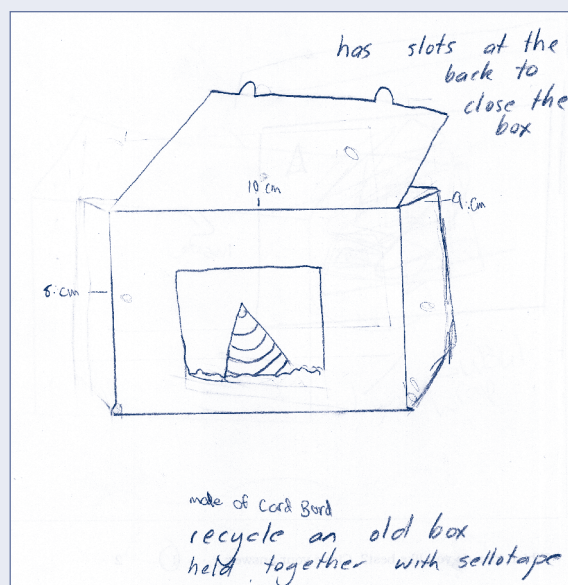 has slots at the
back to
close the
box
10 cm
9.cm
8.cm
made of Card Bord
recycle an old box
held together with sellotape